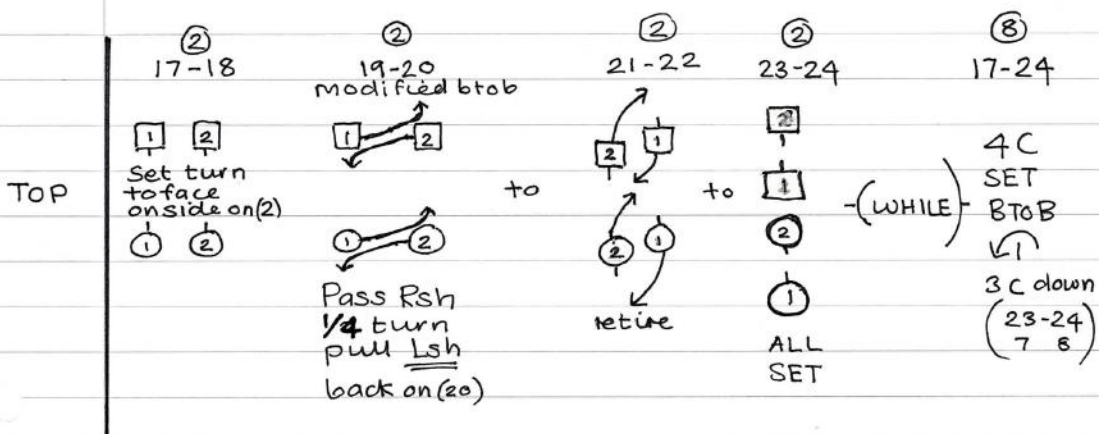 TOP
2
17-18
1 2
Set turn
to face
onside on (2)
1 2
2
19-20
modified btob
1 2
1 2
Pass Rsh
1/4 turn
pull Lsh
back on (20)
to
2
21-22
2 1
2 1
retire
to
2
23-24
2
1
2
1
ALL
SET
-(WHILE)-
8
17-24
4C
SET
BTOB
3C down
(23-24
7 8)